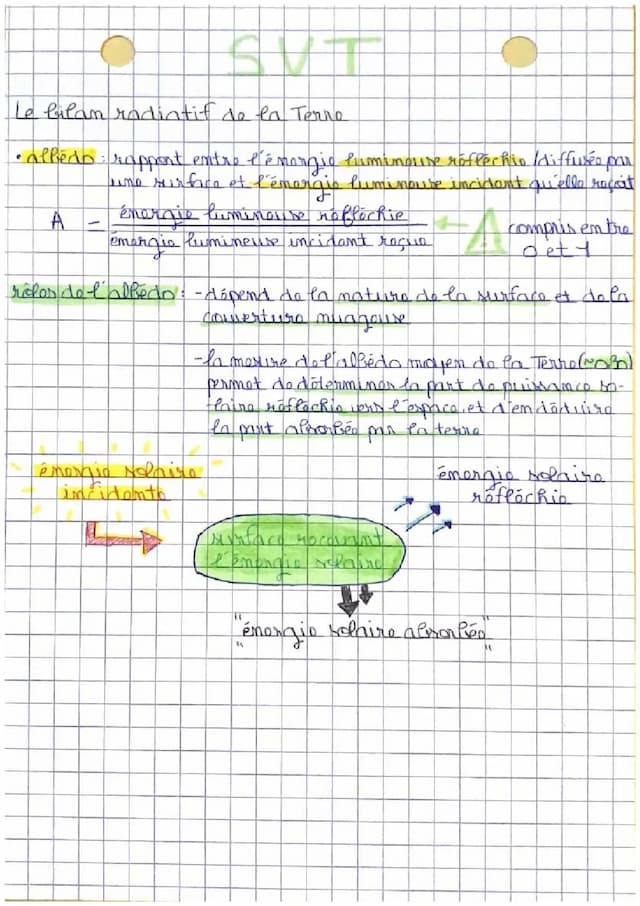 SVT
Le bilan radiatif de la Terre
• albédo : rapport entre l'énergie lumineuse réfléchie / diffusée par
une surface et l'énergie lumineuse incident qu'elle reçoit
A = énergie lumineuse réfléchie
énergie lumineuse incident reçue
! compris entre
0 et 1
rôles de l'albédo : - dépend de la nature de la surface et de la
couverture nuageuse
- la mesure de l'albédo moyen de la Terre (~0,30)
permet de déterminer la part de puissance so-
laire réfléchie vers l'espace et d'en déduire
la part absorbée par la terre
énergie solaire
incidente
énergie solaire
réfléchie
surface recevant
l'énergie solaire
"énergie solaire absorbée"